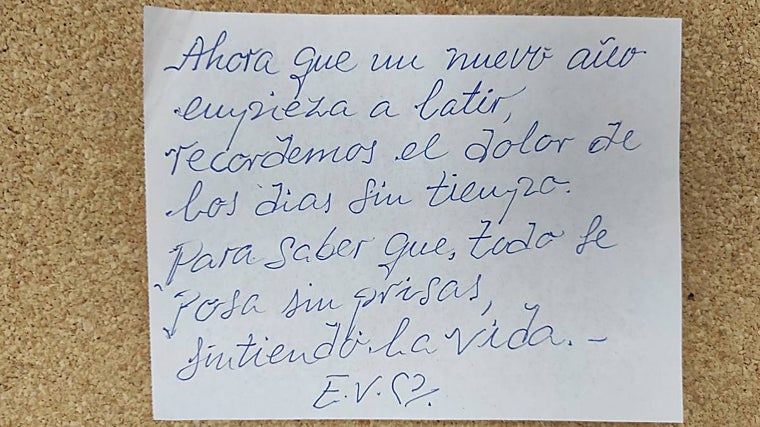 Ahora que un nuevo año
empieza a latir,
recordemos el dolor de
los dias sin tiempo.
Para saber que, todo se
posa sin prisas,
sintiendo la vida. -
E.V.